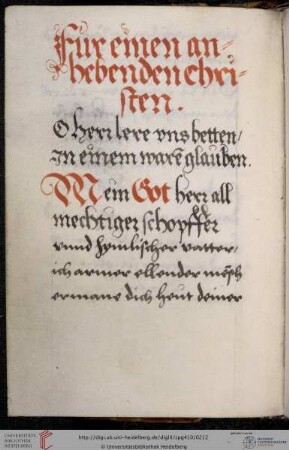 Für einen an-
hebenden chri-
sten.
O herr lere vns betten /
In einem warē glauben.
Mein Got herr all
mechtiger schopffer
vnnd hymlischer vatter,
ich armer ellender mēsch
ermane dich heut deiner
UNIVERSITÄTS-
BIBLIOTHEK
HEIDELBERG
http://digi.ub.uni-heidelberg.de/diglit/cpg453/0212
© Universitätsbibliothek Heidelberg